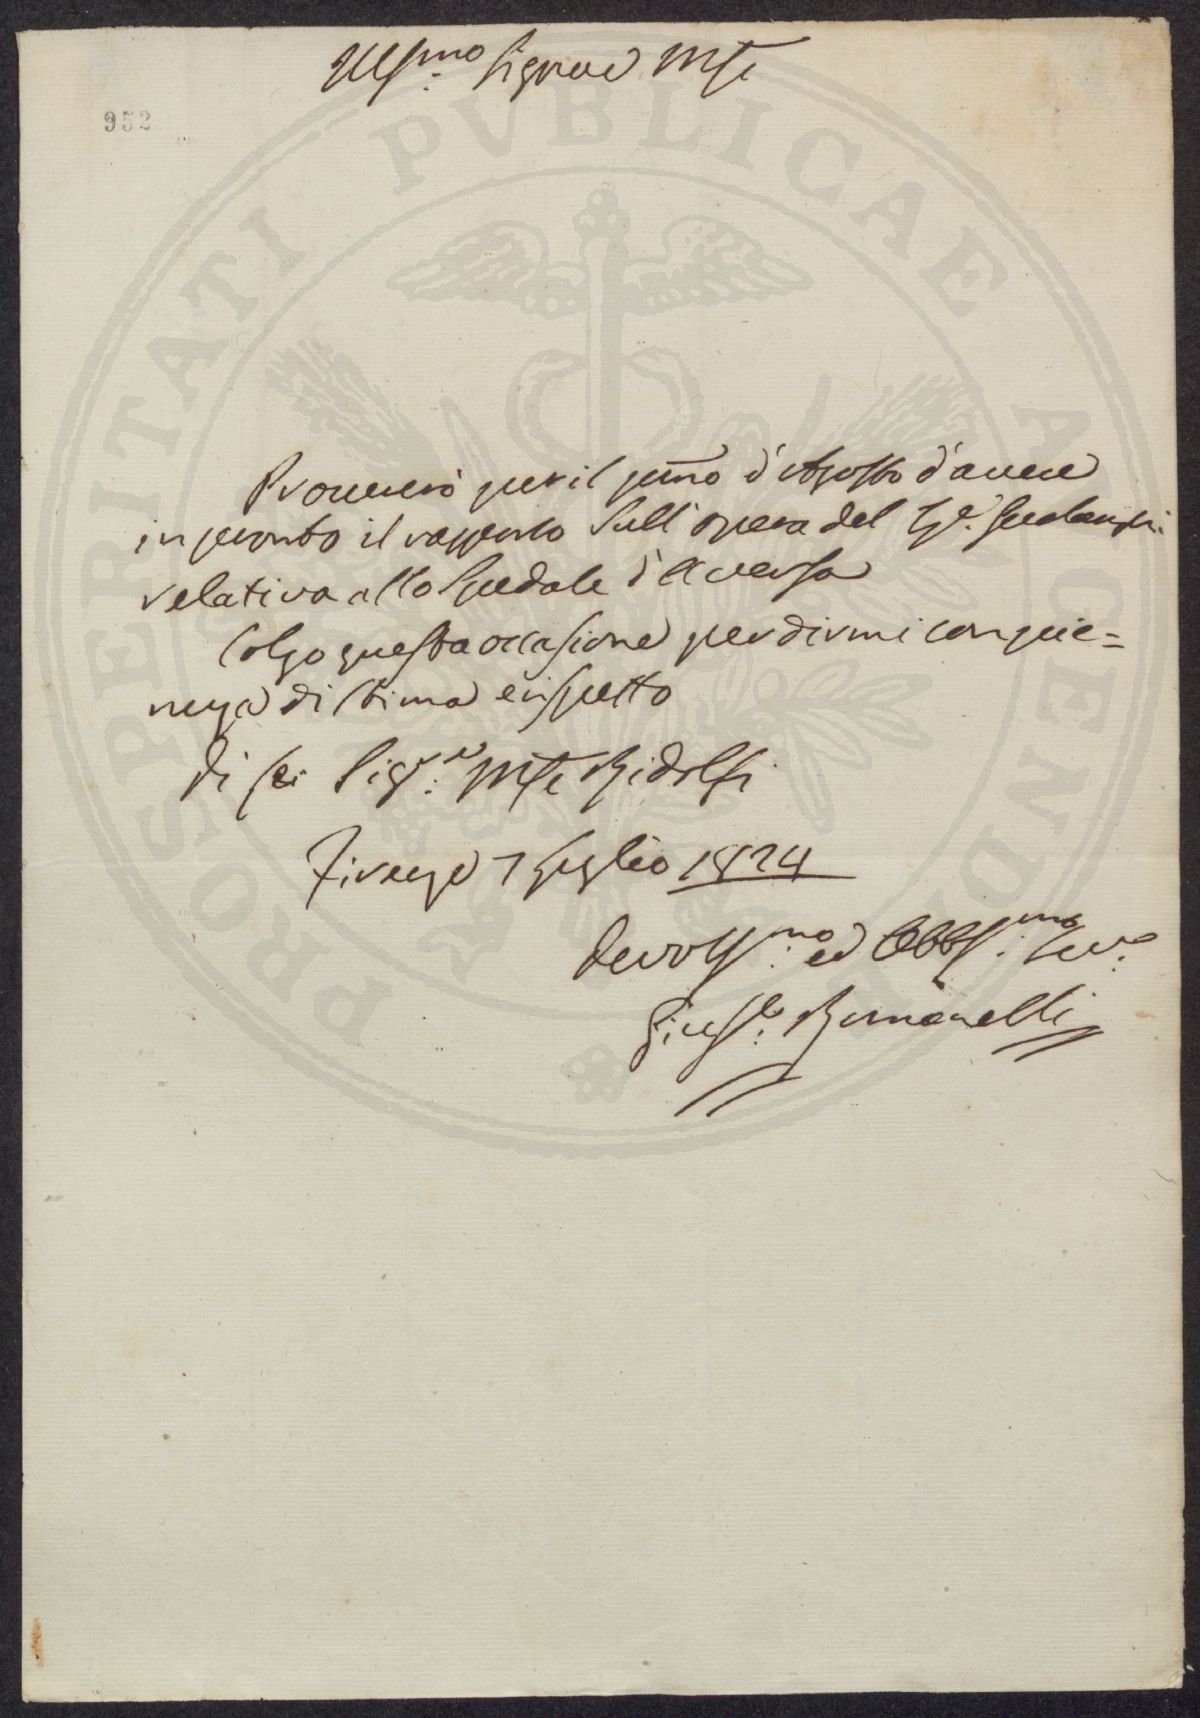 Ill.mo Signore Mse
952
PROSPERITATI PVBLICAE AVGENDAE
Procurerò per il primo d'Agosto d'avere
in pronto il rapporto sull'opera del Sig.e Gualandi
relativa allo Spedale d'Aversa
Colgo questa occasione per dirmi con pie=
nezza di stima e rispetto
Di Lei Sig.re Mse Ridolfi
Firenze 7 Luglio 1824
Devotss.mo ed Obblss.mo Serv.e
Gius.e Romanelli